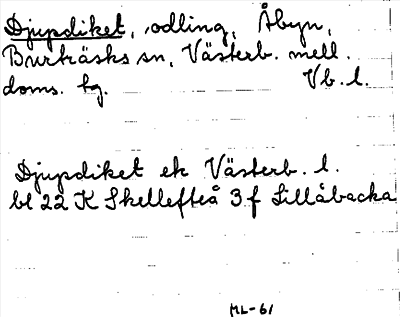 Djupdiket, odling, Åbyn,
Burträsks sn, Västerb. mell.
doms. tg. Vb. l.
Djupdiket ek Västerb. l.
bl 22 K Skellefteå 3 f Lillåbacka
ML-61